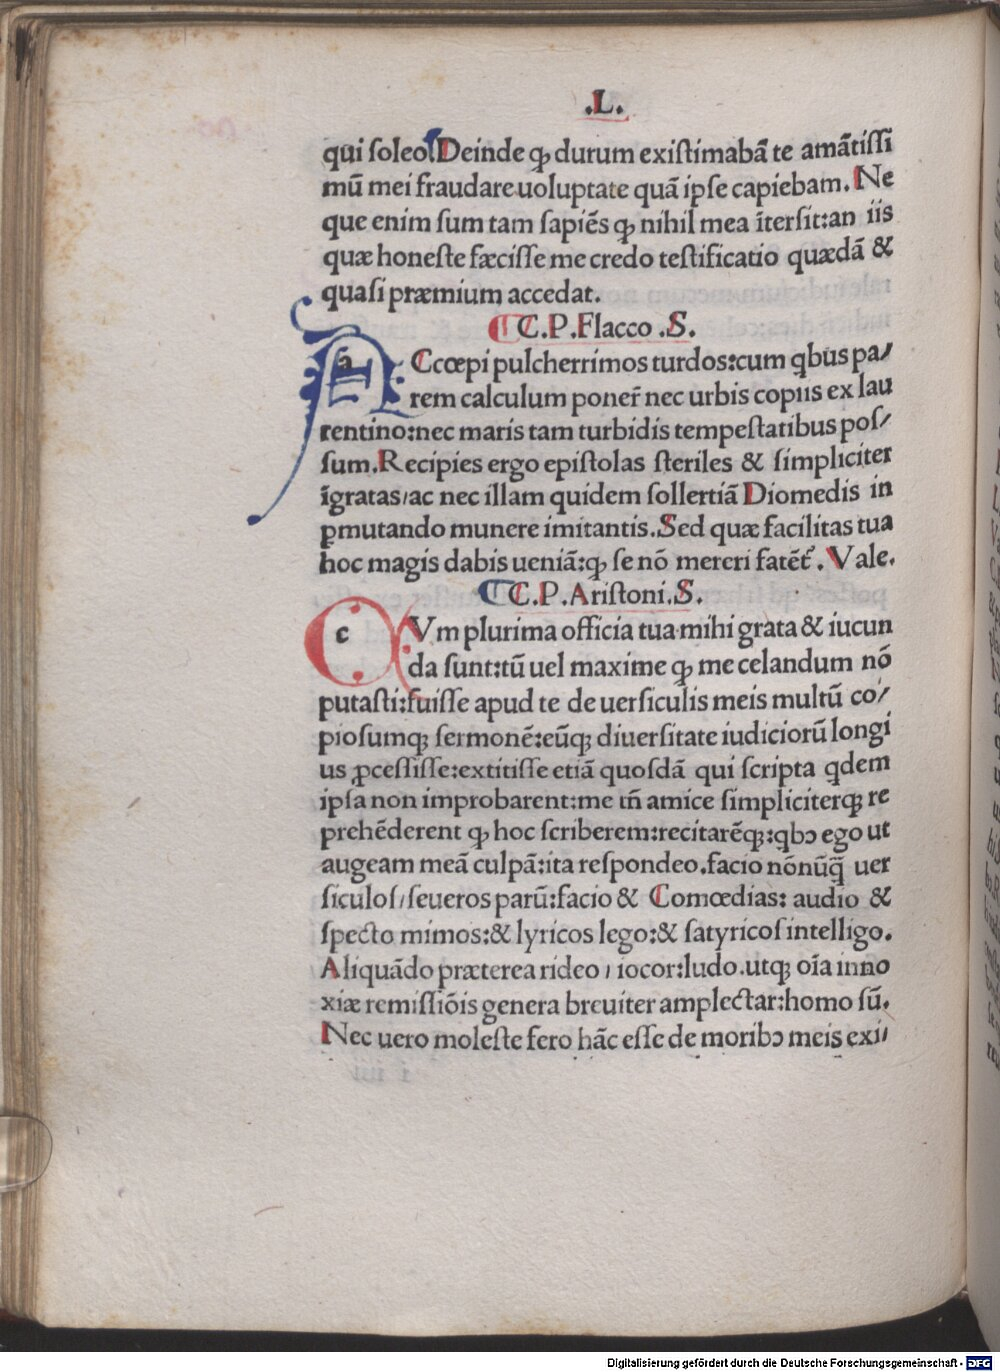 .L.
qui soleo. Deinde ꝙ durum existimabā te amātissi
mū mei fraudare uoluptate quā ipse capiebam. Ne
que enim sum tam sapiēs ꝙ nihil mea ītersit:an iis
quæ honeste fæcisse me credo testificatio quædā &
quasi præmium accedat.
C.P.Flacco .S.
a Ccœpi pulcherrimos turdos:cum qbus pa/
rem calculum poner̄ nec urbis copiis ex lau
rentino:nec maris tam turbidis tempestatibus pos/
sum.Recipies ergo epistolas steriles & simpliciter
īgratas/ac nec illam quidem sollertiā Diomedis in
ꝑmutando munere imitantis.Sed quæ facilitas tua
hoc magis dabis ueniā:ꝙ se nō mereri fatēt̄. Vale.
C.P.Aristoni.S.
c Vm plurima officia tua mihi grata & iucun
da sunt:tū uel maxime ꝙ me celandum nō
putasti:fuisse apud te de uersiculis meis multū co/
piosumqꝫ sermonē:eūqꝫ diuersitate iudiciorū longi
us ꝓcessisse:extitisse etiā quosdā qui scripta qdem
ipsa non improbarent:me tn̄ amice simpliciterqꝫ re
prehēderent ꝙ hoc scriberem:recitarēqꝫ:qbꝰ ego ut
augeam meā culpā:ita respondeo.facio nōnūq̄ uer
siculos/seueros parū:facio & Comœdias: audio &
specto mimos:& lyricos lego:& satyricos intelligo.
Aliquādo præterea rideo/iocor:ludo.utqꝫ oīa inno
xiæ remissiōis genera breuiter amplectar:homo sū.
Nec uero moleste fero hāc esse de moribꝰ meis exi/
Digitalisierung gefördert durch die Deutsche Forschungsgemeinschaft - DFG